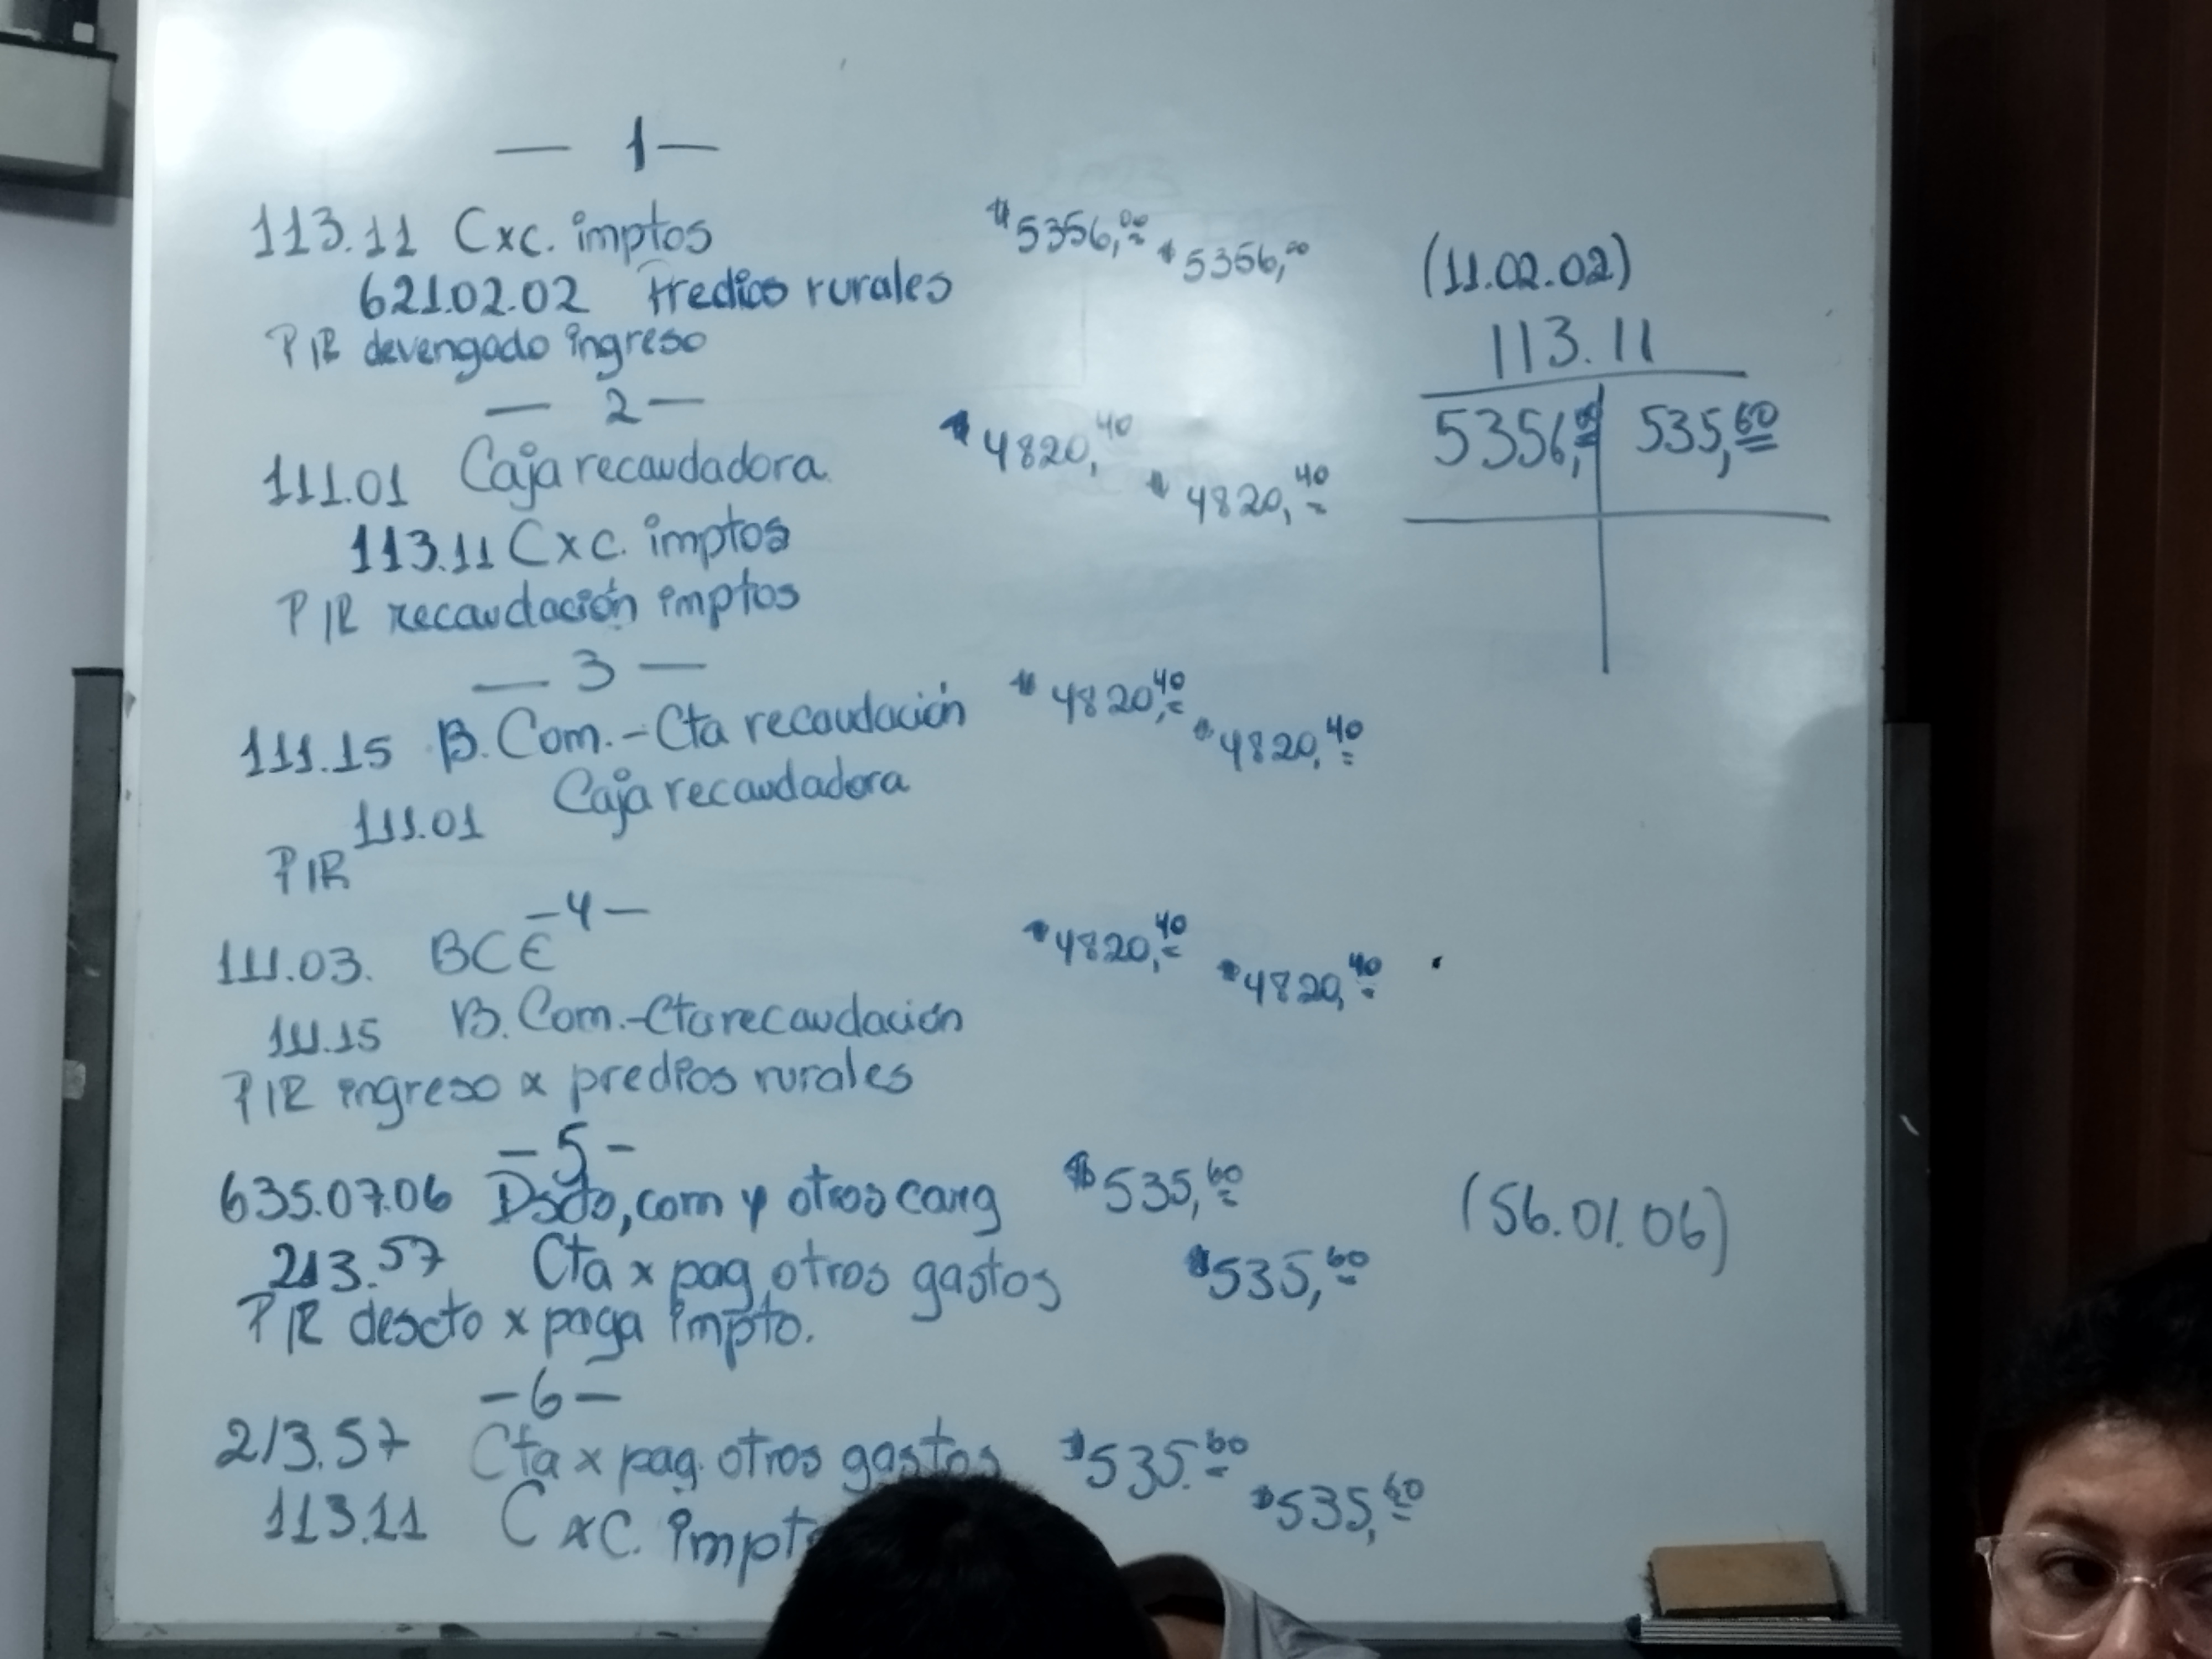 — 1 —
113.11 Cxc. imptos $5356,00
621.02.02 Predios rurales $5356,00
P/R devengado ingreso
— 2 —
111.01 Caja recaudadora $4820,40
113.11 Cxc. imptos $4820,40
P/R recaudación imptos
— 3 —
111.15 B. Com.-Cta recaudación $4820,40
111.01 Caja recaudadora $4820,40
P/R
— 4 —
111.03. BCE $4820,40
111.15 B. Com.-Cta recaudación $4820,40
P/R ingreso x predios rurales
— 5 —
635.07.06 Dscto, com y otros carg $535,60
213.57 Cta x pag. otros gastos $535,60
P/R descto x paga impto.
— 6 —
213.57 Cta x pag. otros gastos $535.60
113.11 CxC. impt $535,60
(11.02.02)
113.11
5356,00 535,60
(56.01.06)